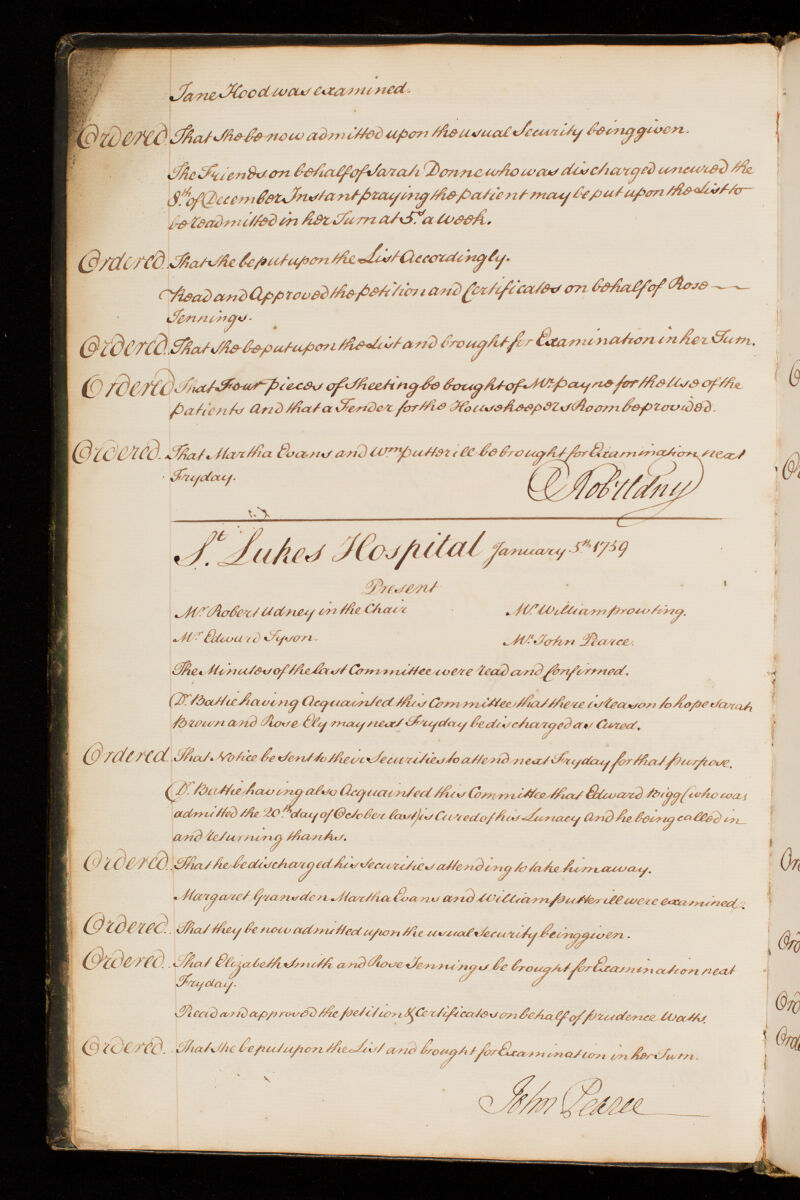 Jane Hood was examined.
Ordered That she be now admitted upon the usual Security being given.
The Friends on behalf of Sarah Donne who was discharged uncured the
8th of December Instant praying the patient may be put upon the List to
be readmitted in her Turn at 5s. a Week.
Ordered That she be put upon the List Accordingly.
Read and Approved the petition and Certificates on behalf of Rose
Jennings.
Ordered That she be put upon the List and brought for Examination in her Turn.
Ordered That Four pieces of Sheeting be bought of Mr. Payne for the Use of the
patients And that a Fender for the Housekeepers Room be provided.
Ordered That Martha Evans and Wm putterill be brought for Examination next
Fryday.
Robt Udny
St. Lukes Hospital January 5th 1759
Present
Mr. Robert Udney in the Chair Mr. William prowting.
Mr. Edward Tyson. Mr. John Pearce.
The Minutes of the last Committee were read and Confirmed.
Dr. Battie having Acquainted this Committee that there is reason to hope Sarah
Brown and Rose Ely may next Fryday be discharged as Cured.
Ordered That Notice be sent to their Securities to attend next Fryday for that purpose.
Dr. Battie having also Acquainted this Committee that Edward Bigg (who was
admitted the 20th day of October last) is Cured of his Lunacy And he being called in
and returning thanks.
Ordered That he be discharged his Securities attending to take him away.
Margaret Gransden Martha Evans and William putterill were examined.
Ordered That they be now admitted upon the usual Security being given.
Ordered That Elizabeth Smith and Rose Jennings be brought for Examination next
Fryday.
Read and approved the petition & Certificates on behalf of prudence Watts.
Ordered. That she be put upon the List and brought for Examination in her Turn.
John Pearce